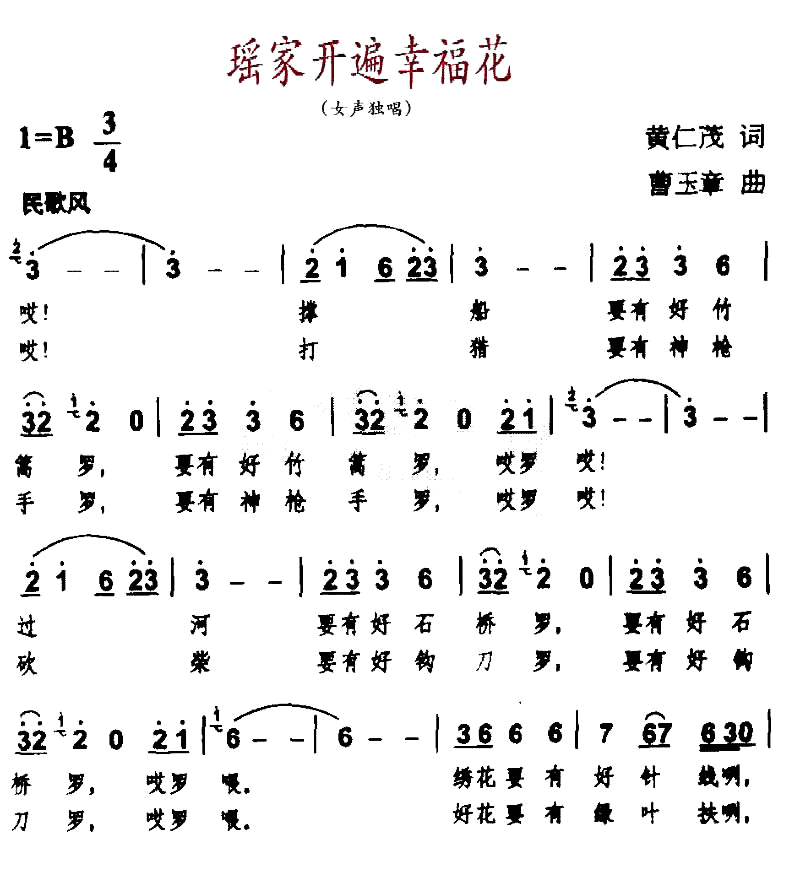 瑶家开遍幸福花
(女声独唱)
1=B 3/4
黄仁茂 词
民歌风
曹玉章 曲
2 3 - - | 3 - - | 2 1 6 23 | 3 - - | 23 3 6 |
哎! 撑 船 要有好竹
哎! 打 猎 要有神枪
32 1 2 0 | 23 3 6 | 32 1 2 0 21 | 1 3 - - | 3 - - |
篙 罗, 要有好竹 篙 罗, 哎罗 哎!
手 罗, 要有神枪 手 罗, 哎罗 哎!
2 1 6 23 | 3 - - | 23 3 6 | 32 1 2 0 | 23 3 6 |
过 河 要有好石 桥 罗, 要有好石
砍 柴 要有好钩 刀 罗, 要有好钩
32 1 2 0 21 | 1 6 - - | 6 - - | 36 6 6 | 7 67 630 |
桥 罗, 哎罗 喂。 绣花要有 好 针 线咧,
刀 罗, 哎罗 喂。 好花要有 绿 叶 扶咧,